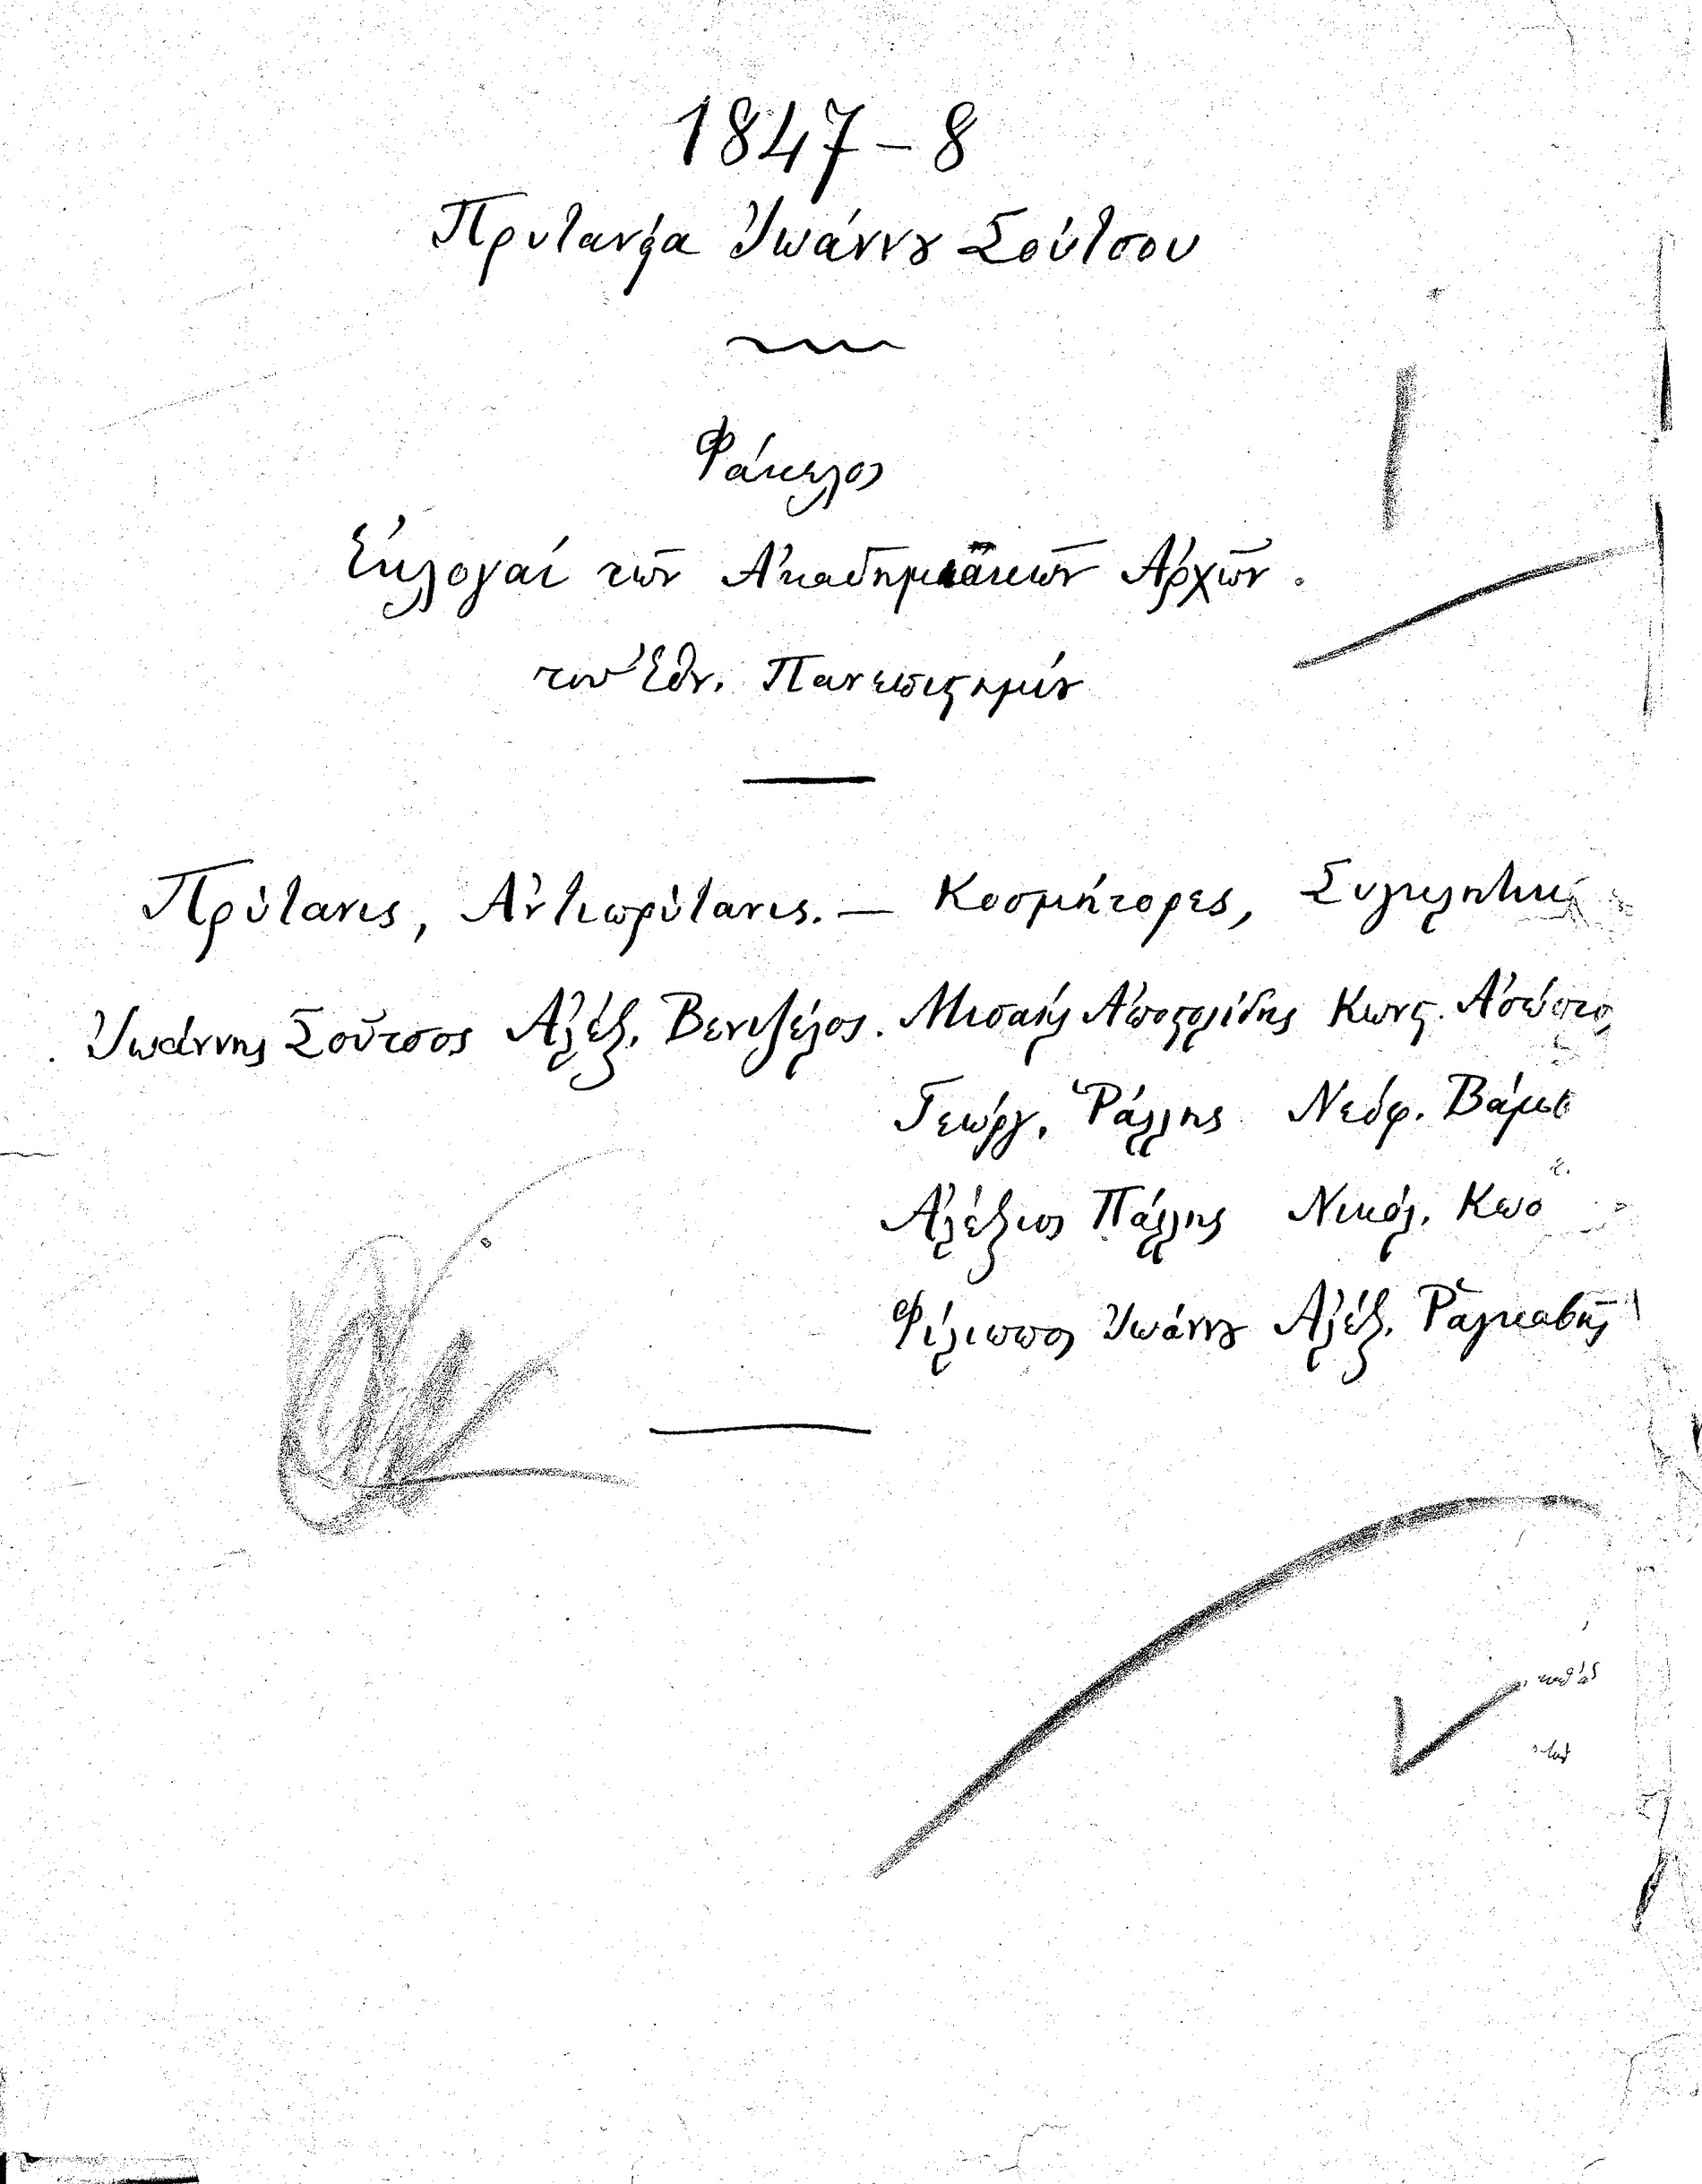 1847-8
Πρυτανεία Ἰωάννου Σούτσου
Φάκελος
Ἐκλογαί τῶν Ἀκαδημαϊκῶν Ἀρχῶν.
του Ἐθν. Πανεπιστημίου
Πρύτανις, Ἀντιπρύτανις. — Κοσμήτορες, Συγκλητικ
Ἰωάννης Σοῦτσος Ἀλέξ. Βενιζέλος. Μισαήλ Ἀποστολίδης Κωνστ. Ἀσώπιο
Γεώργ. Ῥάλλης Νεόφ. Βάμβ
Ἀλέξιος Πάλλης Νικόλ. Κωσ
Φίλιππος Ἰωάννου Ἀλέξ. Ῥαγκαβῆς